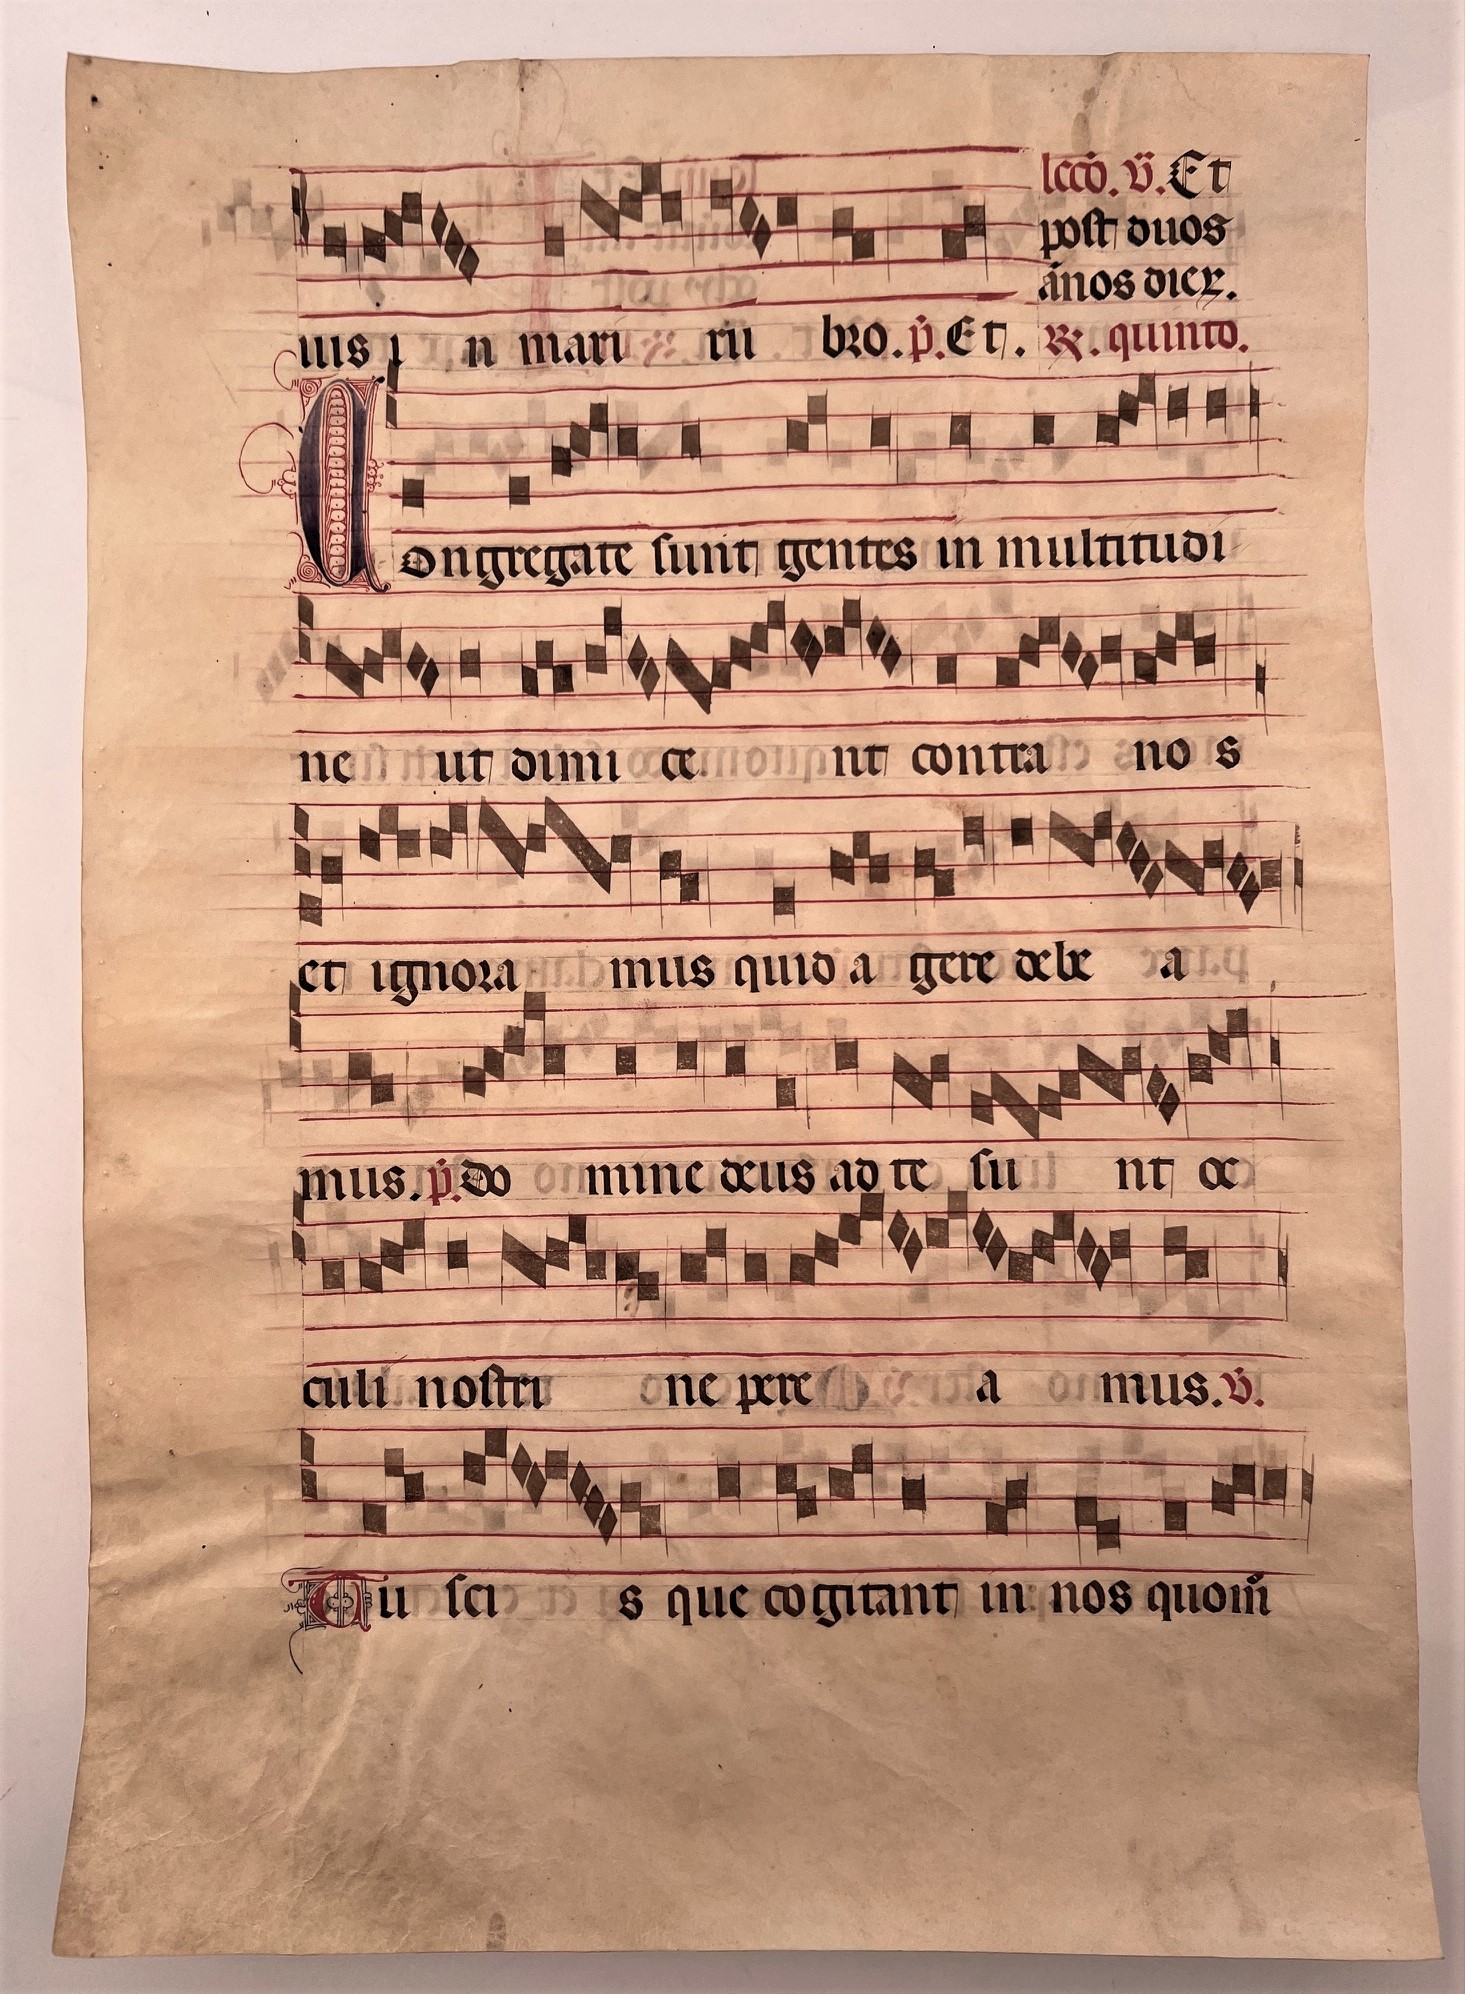 lccō. v̄. Et
post duos
ānos diex.
uis i n mari ru bro. p̄. Et. ℟. quinto.
Congregate sunt gentes in multitudi
ne ut dimi ce nt contra no s
et ignora mus quid a gere debe a
mus. p̄. Do mine deus ad te su nt oc
culi nostri ne pere a mus. v̄.
Tu sci s que cogitant in nos quom̄